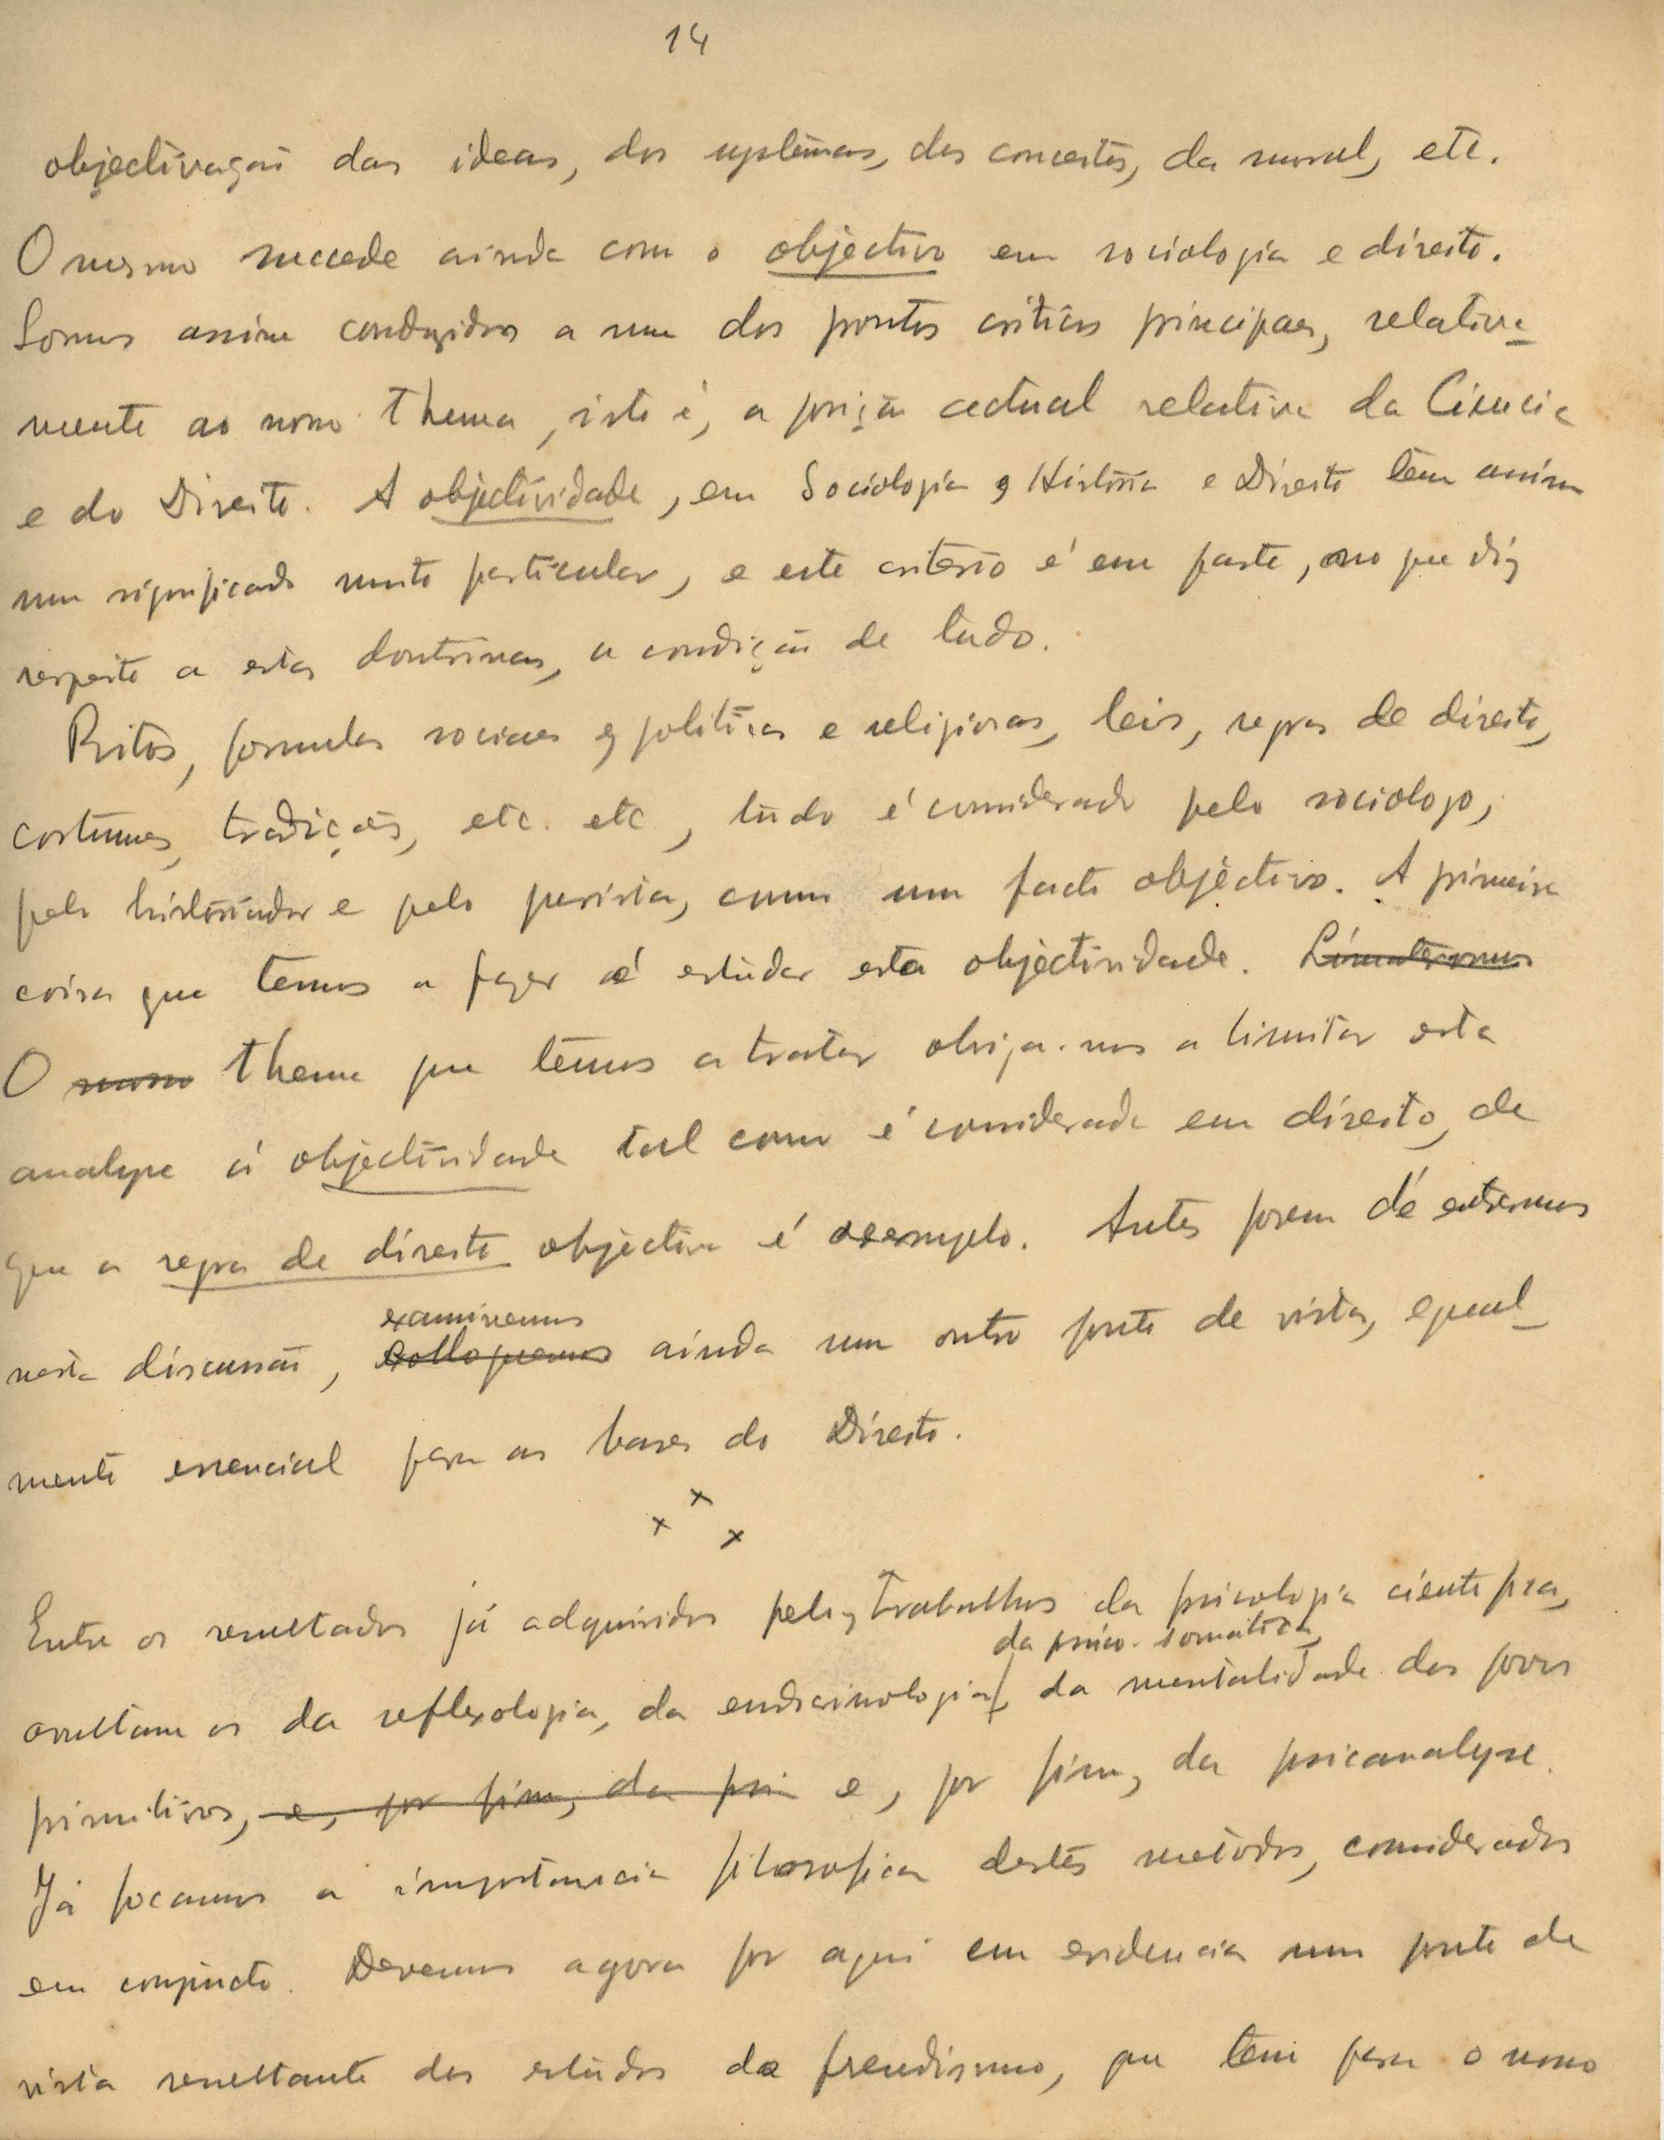 14
objectivação das ideas, dos systemas, dos conceitos, da moral, etc.
O mesmo succede ainda com o objectivo em sociologia e direito.
Somos assim conduzidos a um dos pontos criticos principaes, relativa-
mente ao nosso thema, isto é, a posição actual relativa da Ciencia
e do Direito. A objectividade, em Sociologia, Historia e Direito tem assim
um significado muito particular, e este criterio é em parte, no que diz
respeito a estas doutrinas, a condição de tudo.
Ritos, formulas sociaes, politicas e religiosas, leis, regras de direito,
costumes, tradições, etc. etc, tudo é considerado pelo sociologo,
pelo historiador e pelo jurista, como um facto objectivo. A primeira
coisa que temos a fazer é estudar esta objectividade.
O nosso thema que temos a tratar obriga-nos a limitar esta
analyse á objectividade tal como é considerada em direito, de
que a regra de direito objectivo é exemplo. Antes porem de entrarmos
nesta discussão, examinemos
colloquemos ainda um outro ponto de vista, egual-
mente essencial para as bases do Direito.
x x x
Entre os resultados já adquiridos pelos trabalhos da psicologia cientifica,
da psico-somatica,
avultam os da reflexologia, da endocrinologia, da mentalidade dos povos
primitivos, e, por fim, da psi e, por fim, da psicanalyse.
Já focamos a importancia filosofica destes metodos, considerados
em conjuncto. Devemos agora pôr aqui em evidencia um ponto de
vista resultante dos estudos do freudismo, que tem para o nosso